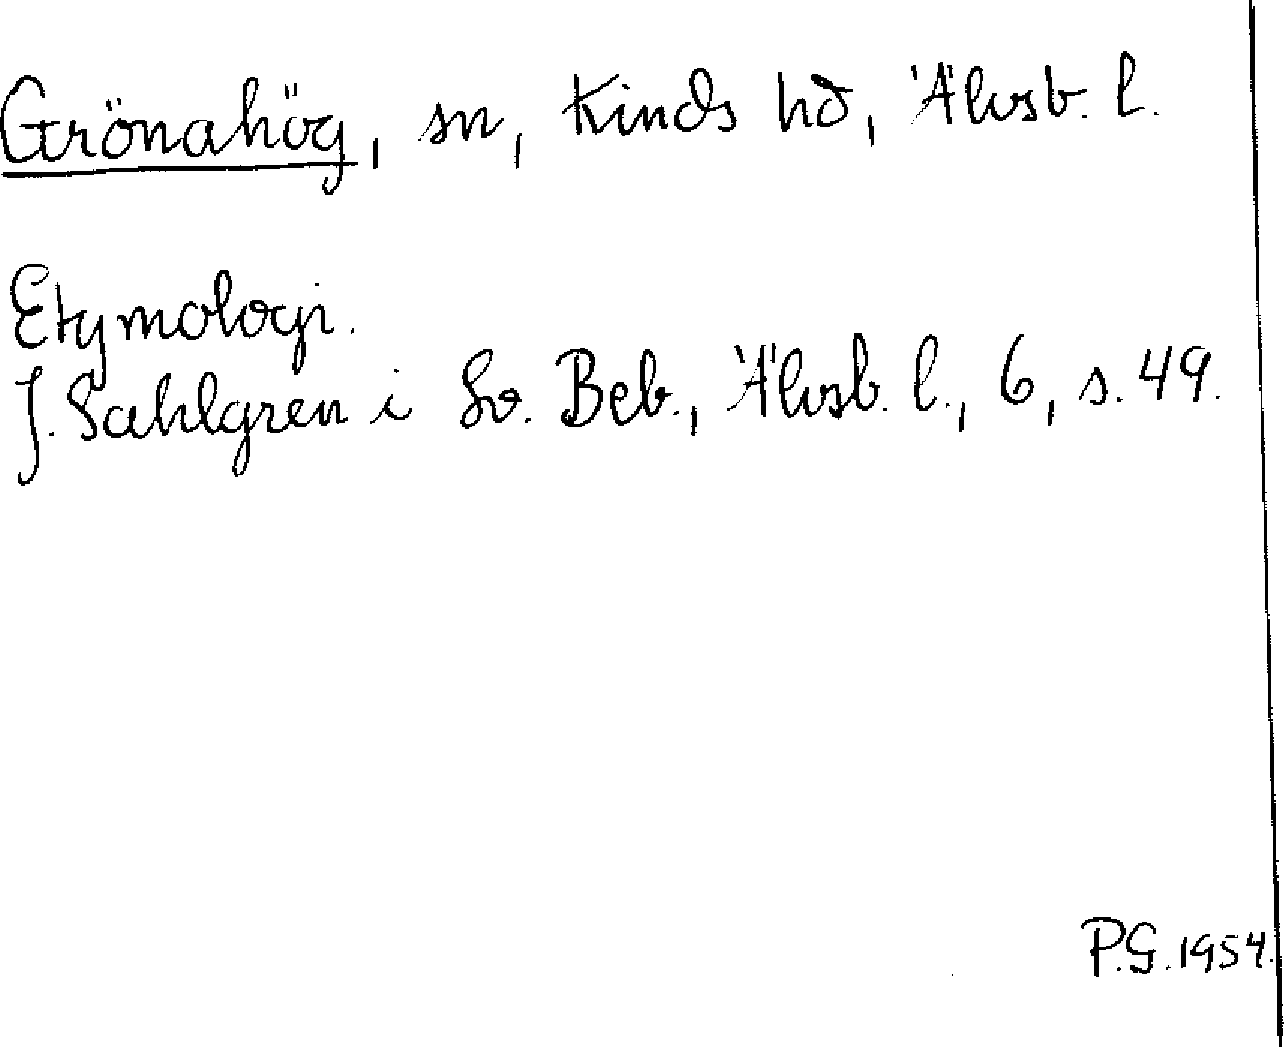 Grönahög, sn, Kinds hd, Älvsb. l.
Etymologi.
J. Sahlgren i Sv. Beb., Älvsb. l., 6, s. 49.
P.G. 1954.